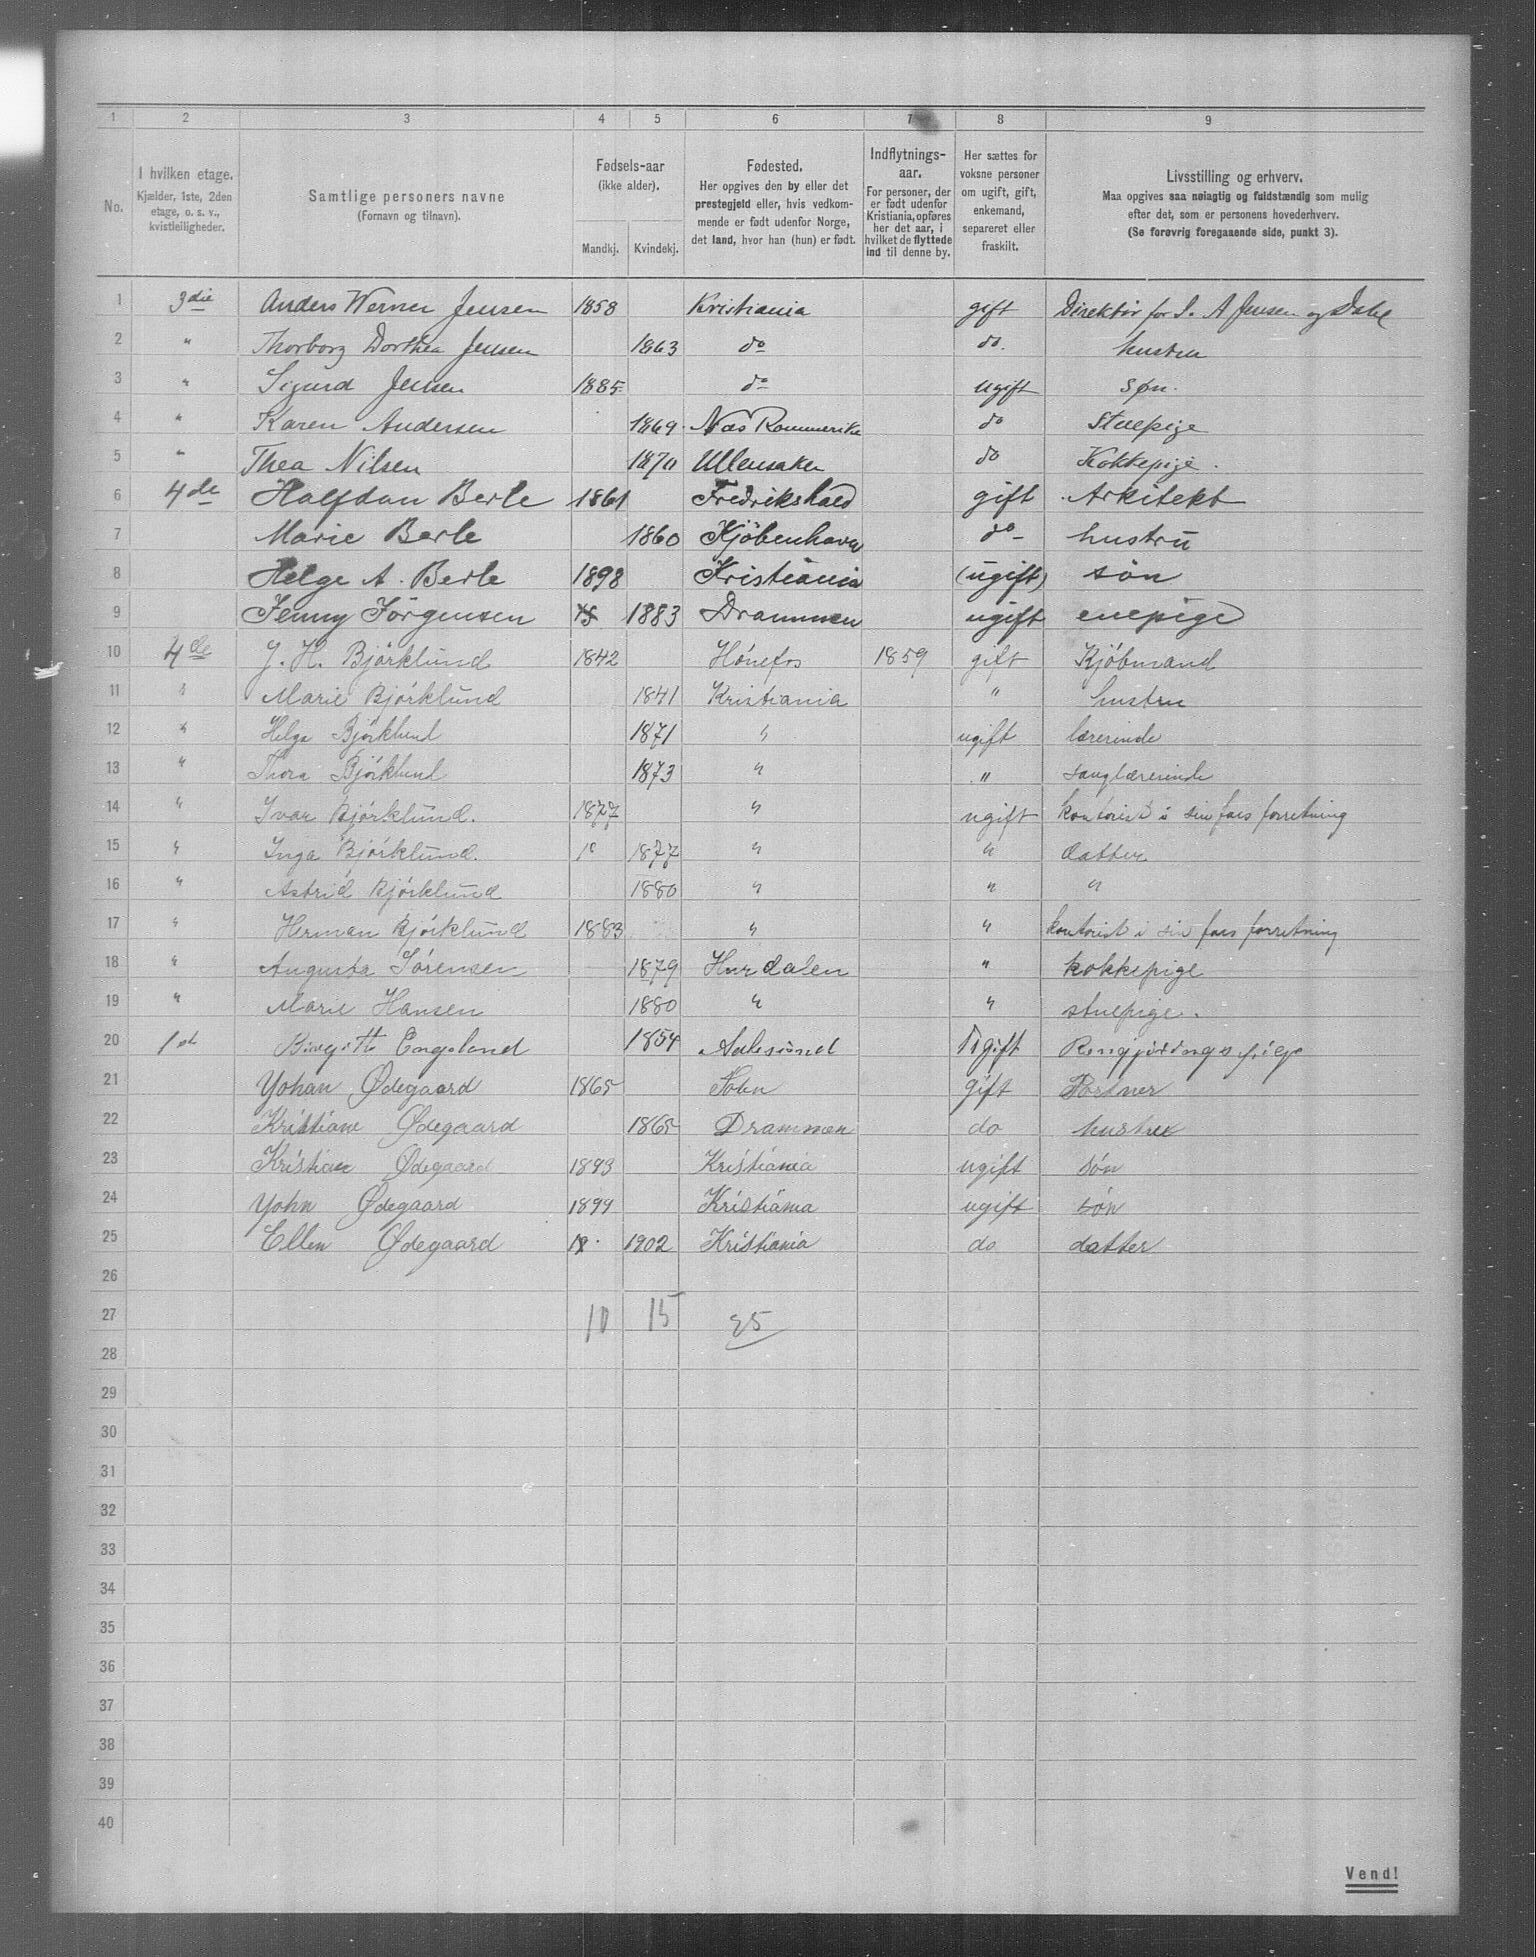 1 2 3 4 5 6 7 8 9
No. I hvilken etage. Kjælder, 1ste, 2den etage, o. s. v., kvistleiligheder. Samtlige personers navne (Fornavn og tilnavn). Fødsels-aar (ikke alder). Mandkj. Kvindekj. Fødested. Her opgives den by eller det prestegjeld eller, hvis vedkommende er født udenfor Norge, det land, hvor han (hun) er født. Indflytnings-aar. For personer, der er født udenfor Kristiania, opføres her det aar, i hvilket de flyttede ind til denne by. Her sættes for voksne personer om ugift, gift, enkemand, separeret eller fraskilt. Livsstilling og erhverv. Maa opgives saa nøiagtig og fuldstændig som mulig efter det, som er personens hovederhverv. (Se forøvrig foregaaende side, punkt 3).
1 3die Anders Werner Jensen 1858 Kristiania gift Direktør for S. A Jensen og Dahl
2 " Thorborg Dorthea Jensen 1863 do do. hustru
3 " Sigurd Jensen 1885 do ugift søn.
4 " Karen Andersen 1869 Næs Romerike do Stuepige
5 " Thea Nilsen 1870 Ullensaker do Kokkepige.
6 4de Halfdan Berle 1861 Fredrikshald gift Arkitekt
7 Marie Berle 1860 Kjöbenhavn do hustru
8 Helge A. Berle 1898 Kristiania (ugift) sön
9 Jenny Jörgensen 18 1883 Drammen ugift enepige
10 4de J. H. Björklund 1842 Hönefos 1859 gift Kjöbmand
11 " Marie Björklund 1841 Kristiania " hustru
12 " Helga Björklund 1871 " ugift lærerinde
13 " Thora Björklund 1873 " " sanglærerinde
14 " Ivar Björklund. 1877 " ugift kontorist i sin fars forretning
15 " Inga Björklund. 1877 " " datter
16 " Astrid Björklund 1880 " " "
17 " Herman Björklund 1883 " " kontorist i sin fars forretning
18 " Augusta Sörensen 1879 Hurdalen " kokkepige
19 " Marie Hansen 1880 " " stuepige.
20 1st Birgitte Engeland 1854 Aalesund Ugift Rengjöringspige
21 Yohan Ødegaard 1865 gift Portner
22 Kristiane Ødegaard 1865 Drammen do hustru
23 Kristian Ødegaard 1893 Kristiania ugift sön
24 Yohn Ødegaard 1899 Kristiania ugift sön
25 Ellen Ødegaard 18 1902 Kristiania do datter
26
27 10 15 25
28
29
30
31
32
33
34
35
36
37
38
39
40
Vend!